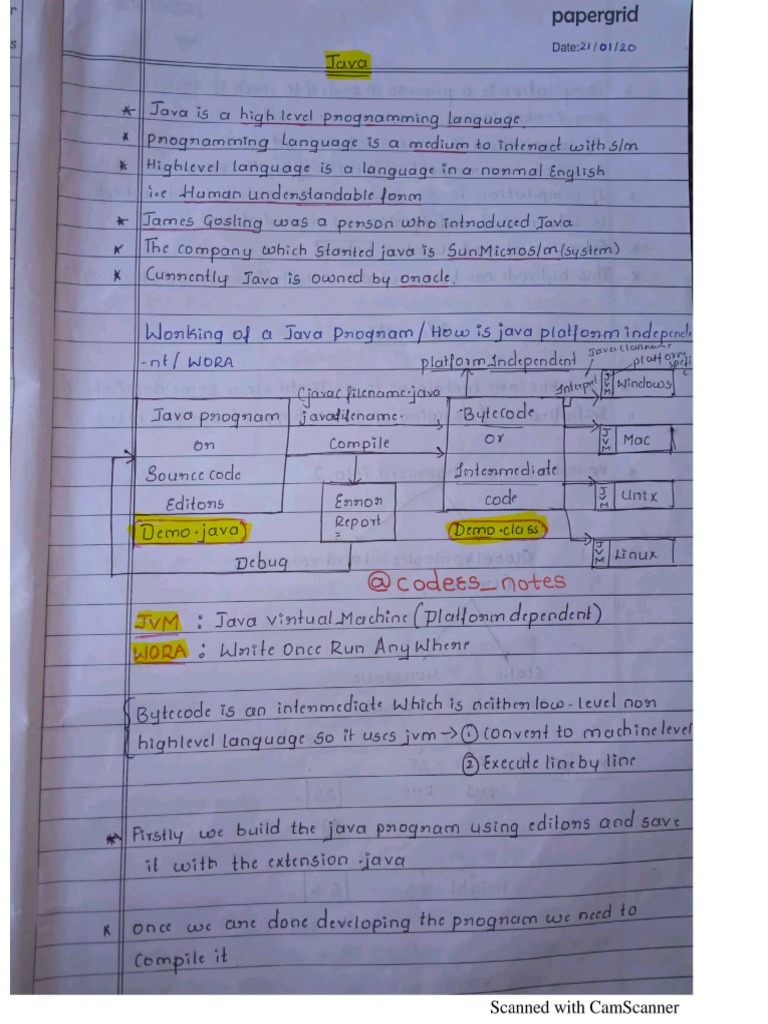 papergrid
Date:21/01/20
Java
* Java is a high level programming language.
* programming Language is a medium to interact with s/m
* Highlevel language is a language in a normal English
i.e Human understandable form
* James Gosling was a person who introduced Java
* The company which started java is SunMicros/m(system)
* Currently Java is owned by oracle.
Working of a Java program / How is java platform independe
-nt / WORA
platform Independent
Java program
on
Source code
Editors
Demo.java
javac filename.java
javafilename.
Compile
Error
Report
Debug
Bytecode
or
Intermediate
code
Demo.class
Interpret
platform
JVM Windows
JVM Mac
JVM Unix
JVM Linux
@codees_notes
JVM : Java Virtual Machine (platform dependent)
WORA : Write Once Run AnyWhere
Bytecode is an intermediate which is neither low-level nor
highlevel language so it uses jvm → ① convert to machine level
② Execute line by line.
* Firstly we build the java program using editors and save
it with the extension .java
* once we are done developing the program we need to
compile it.
Scanned with CamScanner